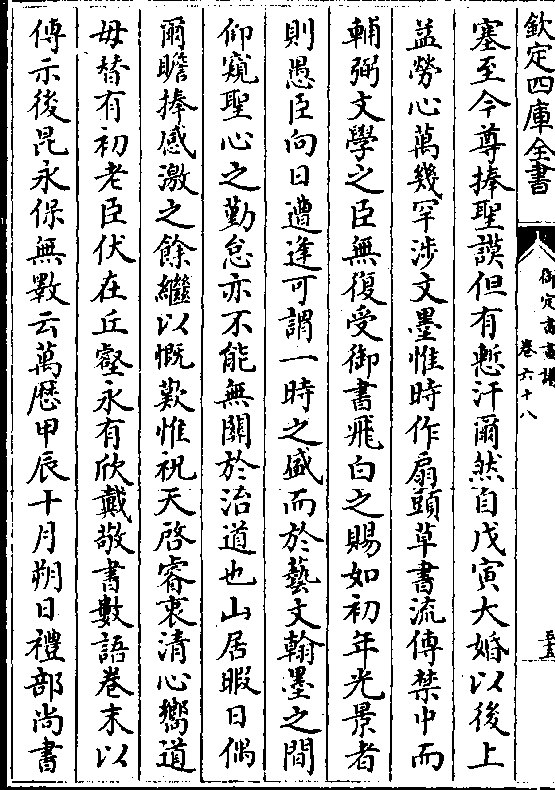 欽定四庫全書
御定書畫譜
卷六十八
塞至今尊捧聖謨但有慙汗爾然自戊寅大婚以後上
益勞心萬幾罕涉文墨惟時作扇頭草書流傳禁中而
輔弼文學之臣無復受御書飛白之賜如初年光景者
則愚臣向日遭逢可謂一時之盛而於藝文翰墨之間
仰窺聖心之勤怠亦不能無關於治道也山居暇日偶
爾瞻捧感激之餘繼以慨歎惟祝天啓睿衷清心嚮道
毋替有初老臣伏在丘壑永有欣戴敬書數語卷末以
傳示後昆永保無斁云萬歴甲辰十月朔日禮部尚書